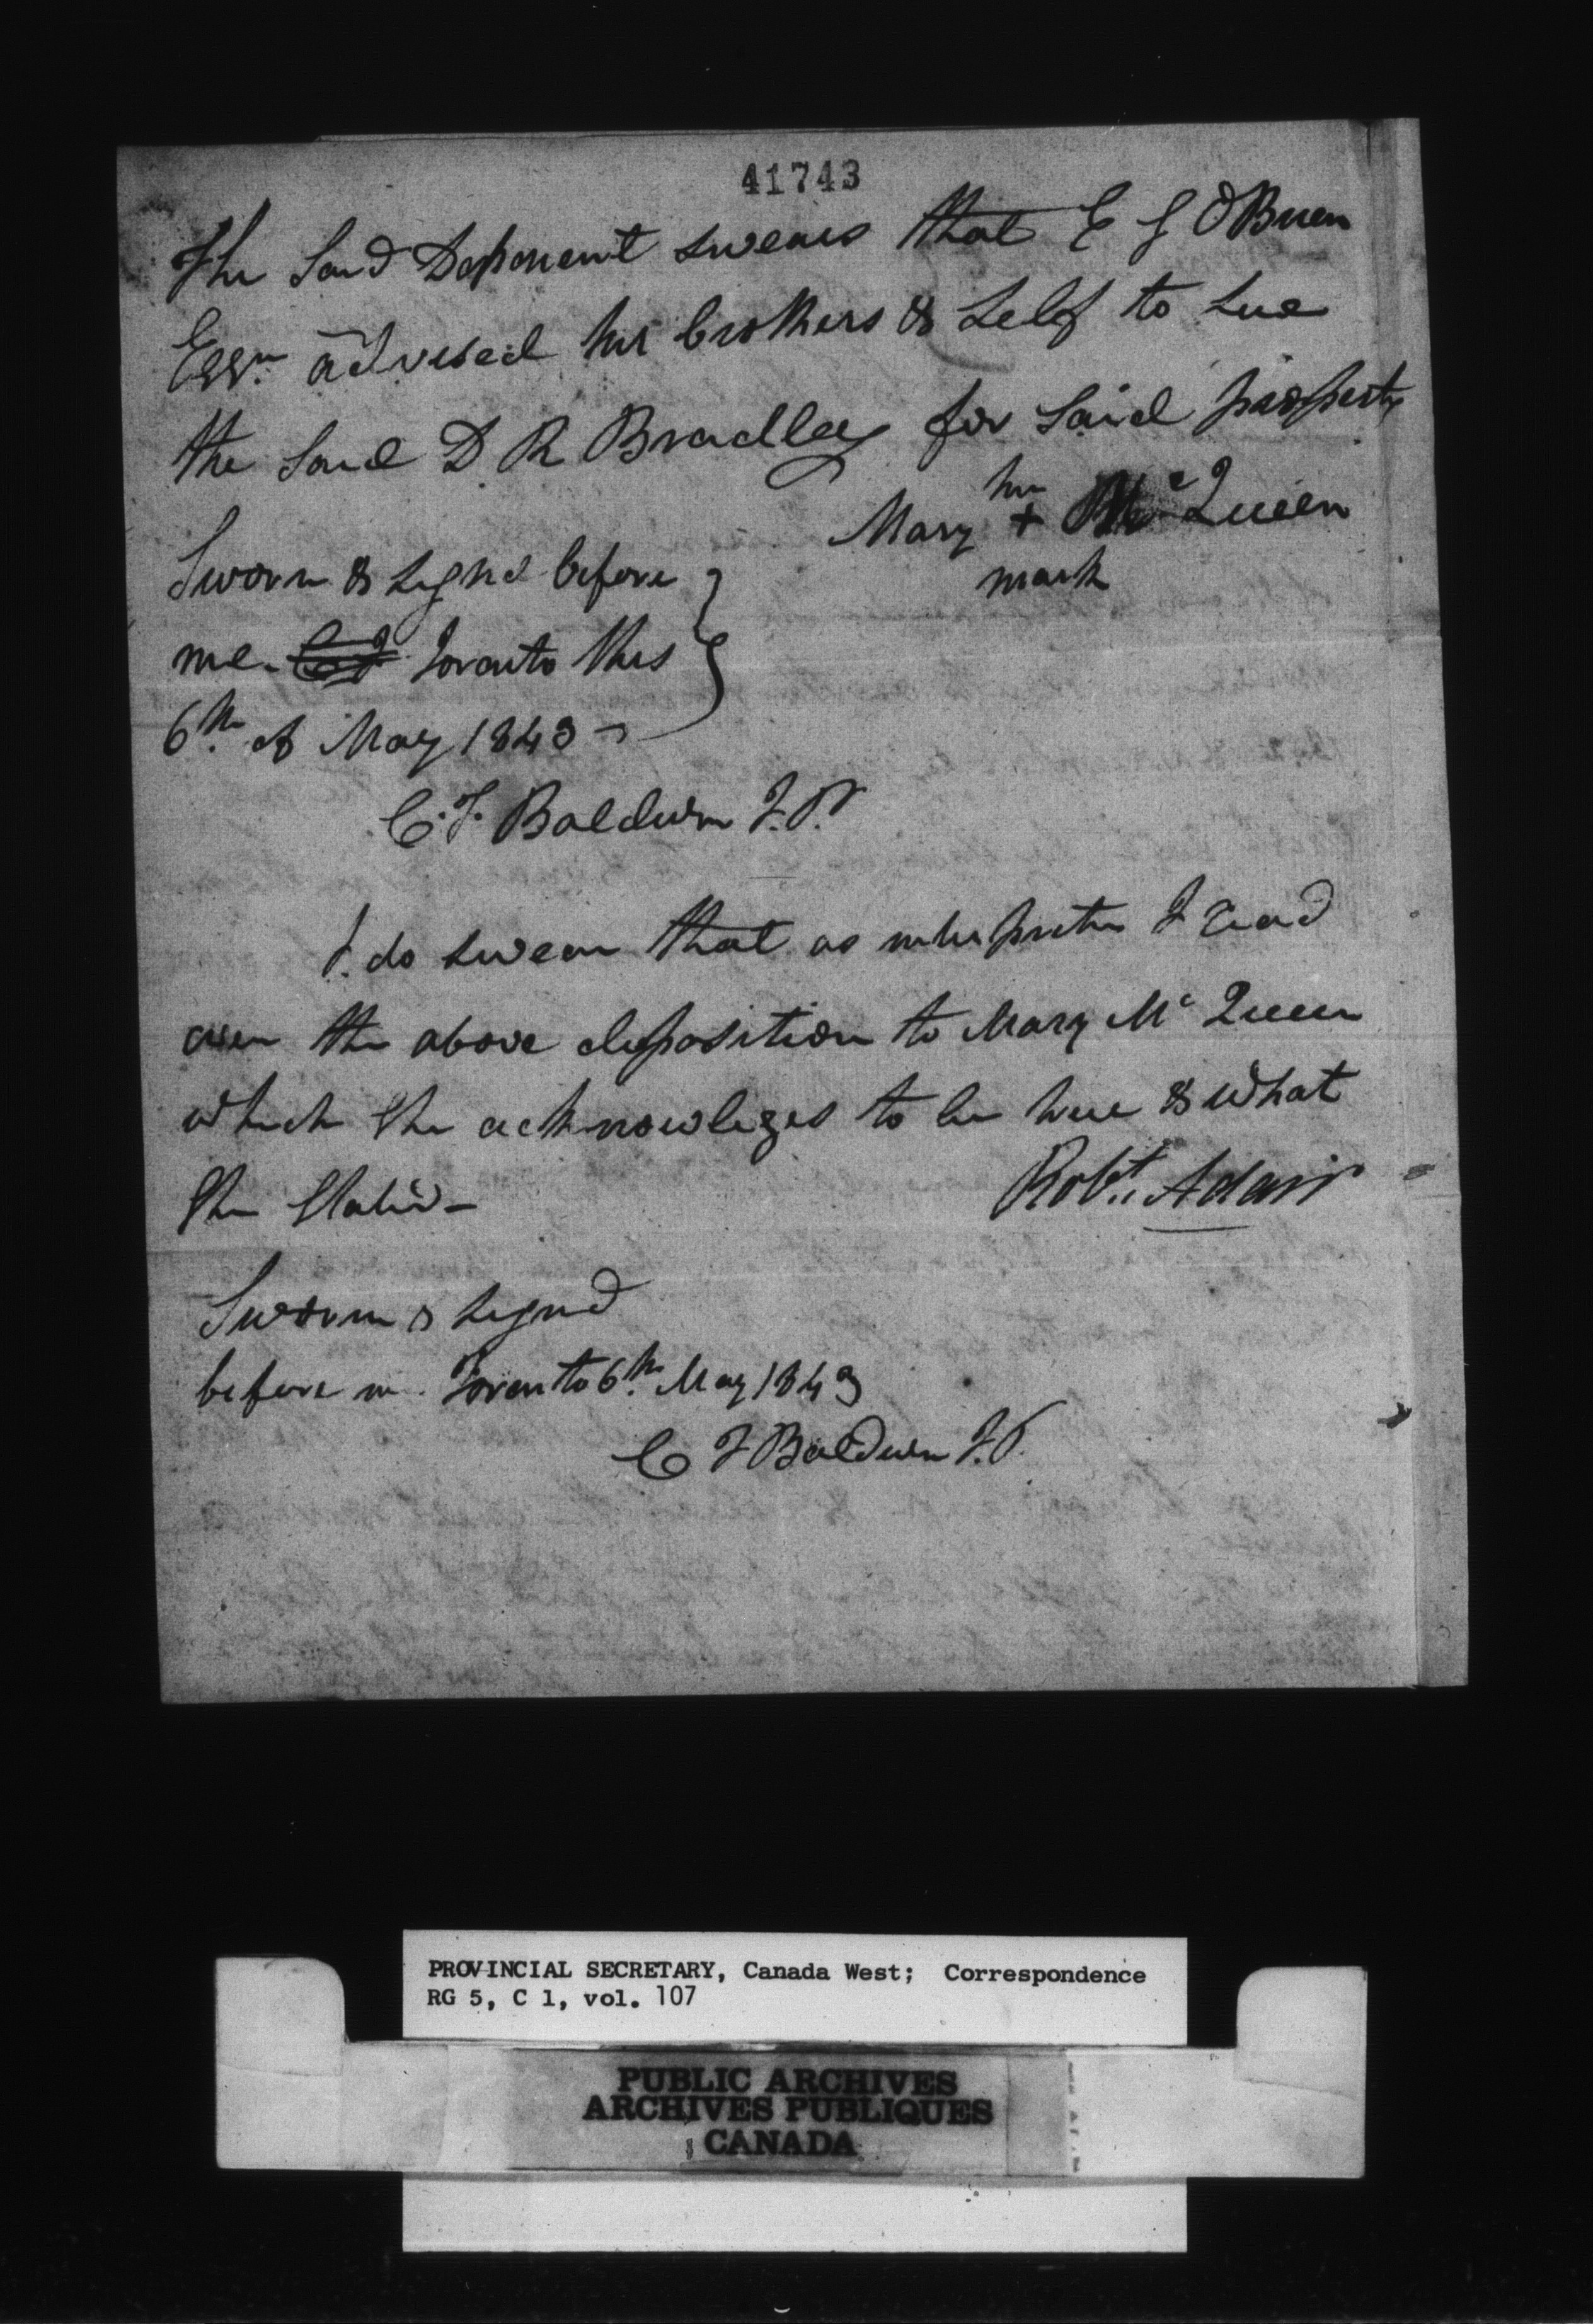 41743
The Said Deponent swears that E G OBrien
Esqr. advised her brothers & Self to sue
the said D R Bradley for said property
her
Mary + McQueen
mark
Sworn & signd before
me Toronto this
6th. of May 1843
C. F. Baldwin J.P.
I do swear that as interpreter I read
over the above deposition to Mary Mc Queen
which she acknowleges to be true & what
she stated -
Robt. Adair
Sworn & signd
before me Toronto 6th. May 1843
C F Baldwin J.P.
PROVINCIAL SECRETARY, Canada West; Correspondence
RG 5, C 1, vol. 107
PUBLIC ARCHIVES
ARCHIVES PUBLIQUES
CANADA